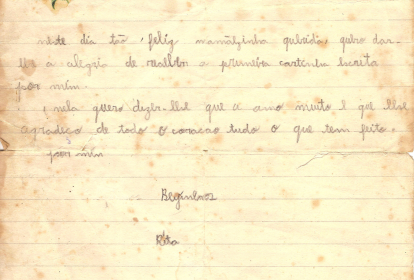 neste dia tão feliz mamãzinha querida, quero dar-
lhe a alegria de receber a primeira cartinha escrita
por mim.
nela quero dizer-lhe que a amo muito e que lhe
agradeço de todo o coracao tudo o que tem feito,
por mim
Beijinhos
Rita